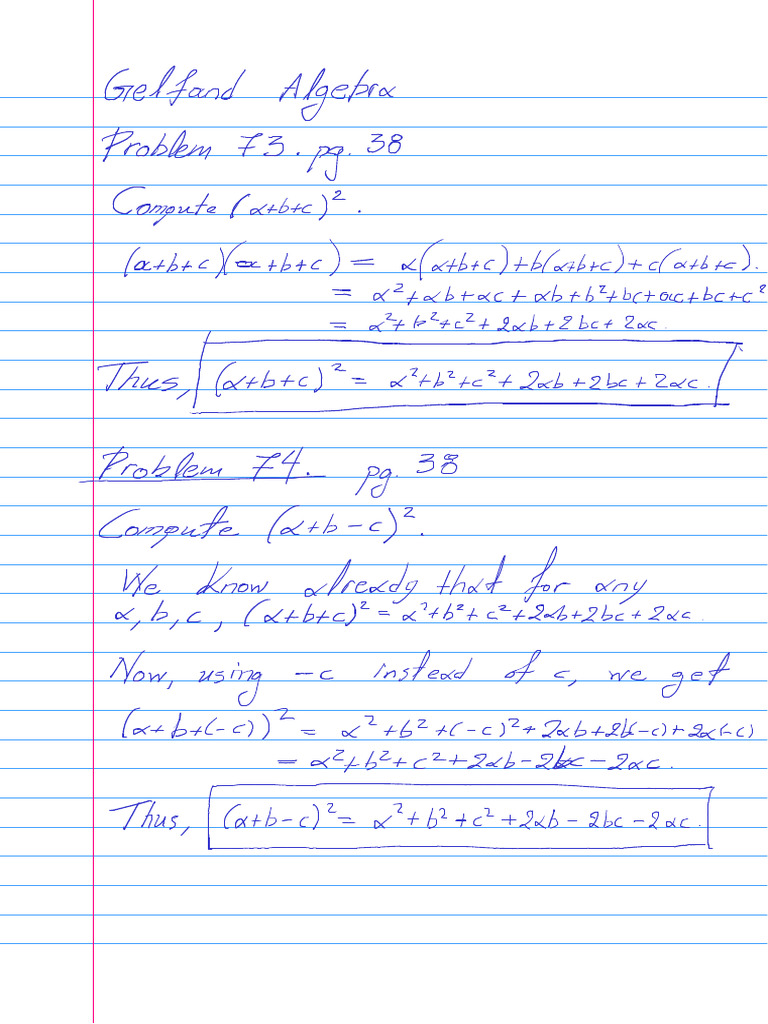 Gelfand Algebra
Problem 73. pg. 38
Compute (a+b+c)².
(a+b+c)(a+b+c) = a(a+b+c)+b(a+b+c)+c(a+b+c).
= a²+ab+ac+ab+b²+bc+ac+bc+c²
= a²+b²+c²+2ab+2bc+2ac.
Thus, (a+b+c)² = a²+b²+c²+2ab+2bc+2ac.
Problem 74. pg. 38
Compute (a+b-c)².
We know already that for any
a, b, c, (a+b+c)² = a²+b²+c²+2ab+2bc+2ac.
Now, using -c instead of c, we get
(a+b+(-c))² = a²+b²+(-c)²+2ab+2b(-c)+2a(-c)
= a²+b²+c²+2ab-2bc-2ac.
Thus, (a+b-c)² = a²+b²+c²+2ab-2bc-2ac.